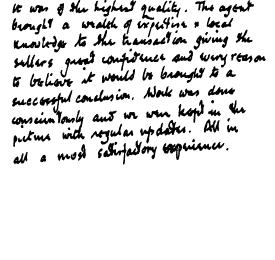 It was of the highest quality. The agent
brought a wealth of expertise & local
knowledge to the transaction giving the
sellers great confidence and every reason
to believe it would be brought to a
successful conclusion. Work was done
conscientously and we were kept in the
picture with regular updates. All in
all a most satisfactory experience.